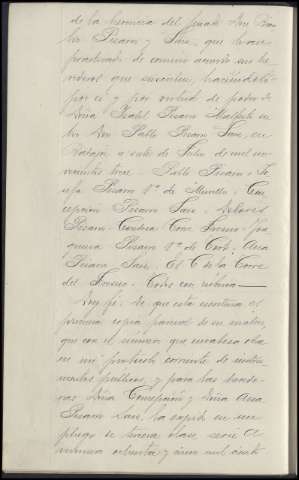 de la herencia del finado Don Pa-
blo Pizarro y Saiz, que han
practicado de comun acuerdo sus he-
rederos que suscriben, haciendolo
por si y por virtud de poder de
Doña Isabel Pizarro
Don Pablo Pizarro Saiz, en
Badajoz a siete de Julio de mil no-
vecientos trece. - Pablo Pizarro. - Jo-
sefa Pizarro Vª de Murillo. - Con-
cepcion Pizarro Saiz. - Dolores
Pizarro. - Conde Torre Fresno. - Joa-
quina Pizarro Vª de Ana
Pizarro Saiz. - El C. de la Torre
del Fresno. - Todos con rubrica
Doy fe: de que esta escritura es
primera copia parcial de su matriz
que con el número que encabeza obra
en mi protocolo corriente de instru-
mentos publicos, y para las herede-
ras Doña Concepcion y Doña Ana
Pizarro Saiz, la expido en
pliegos de tercera clase, serie A
numeros ochenta y cinco mil